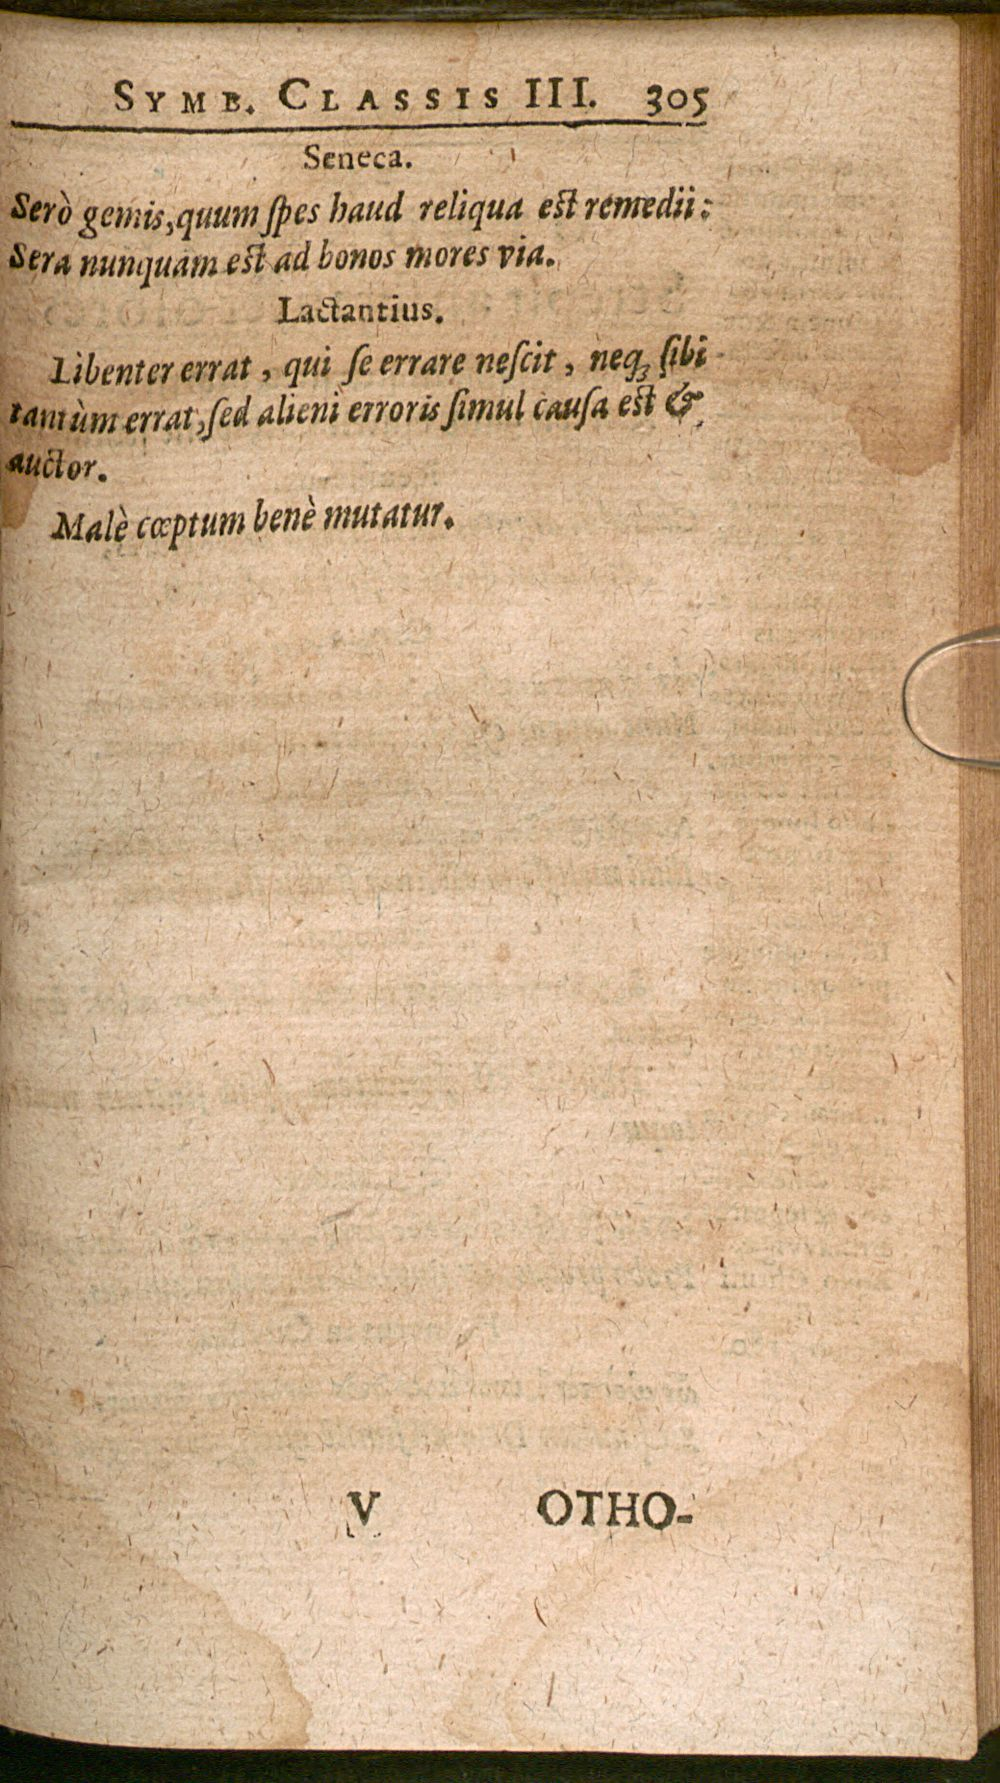 SYMB. CLASSIS III. 305
Seneca.
Serò gemis, quum ſpes haud reliqua eſt remedii:
Sera nunquam eſt ad bonos mores via.
Lactantius.
Libenter errat, qui ſe errare neſcit, neq́ꝫ ſibi
tantùm errat, ſed alieni erroris ſimul cauſa eſt &
auctor.
Malè cœptum benè mutatur.
V OTHO-